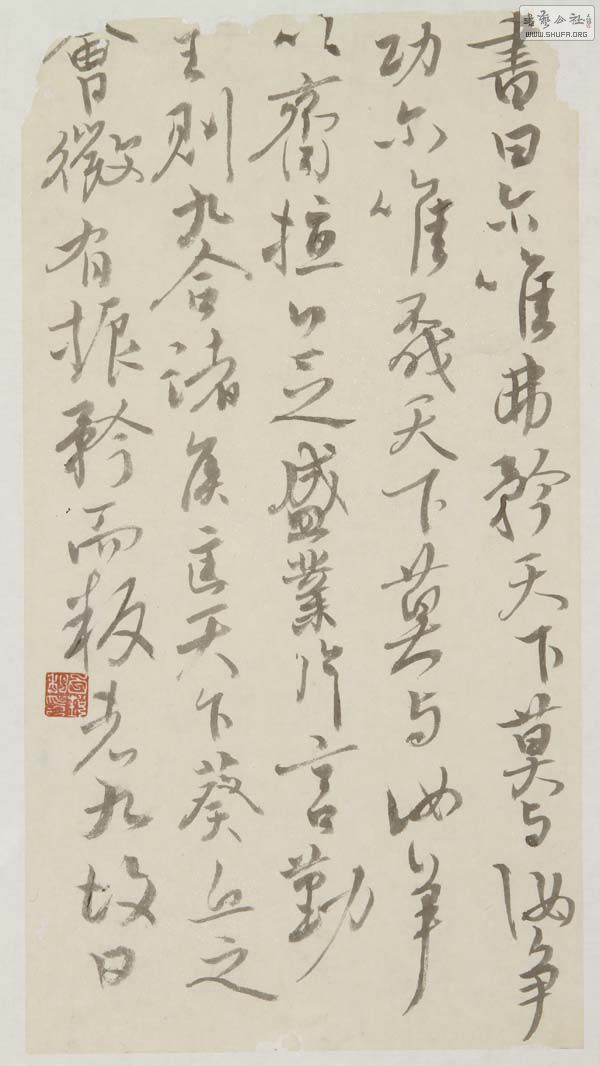 書曰尔唯弗矜天下莫与汝争
功尔唯不伐天下莫与汝争
以齊桓公之盛業片言勤
王則九合諸侯匡天下葵丘之
會微有振矜而叛者九故曰
書藝公社
WWW.SHUFA.ORG